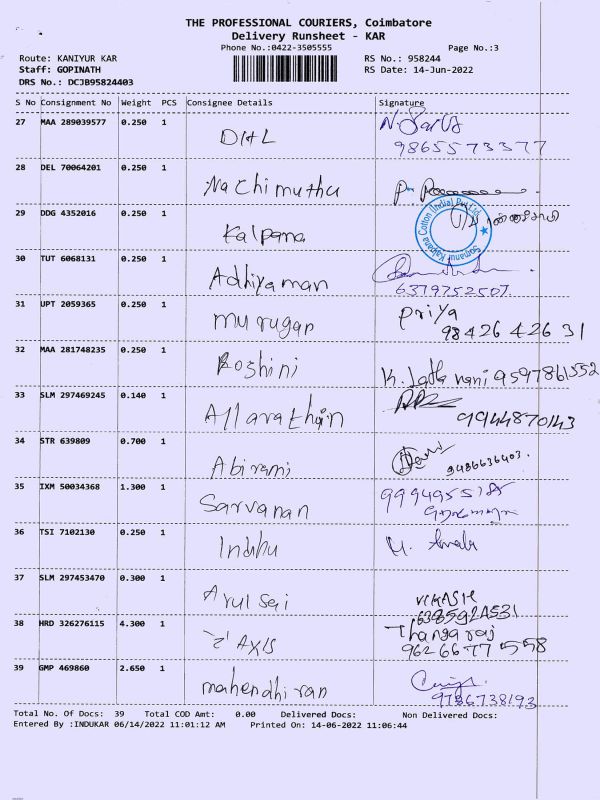 THE PROFESSIONAL COURIERS, Coimbatore
Delivery Runsheet - KAR
Phone No.:0422-3505555 Page No.:3
Route: KANIYUR KAR RS No.: 958244
Staff: GOPINATH RS Date: 14-Jun-2022
DRS No.: DCJB95824403
S No Consignment No Weight PCS Consignee Details Signature
27 MAA 289039577 0.250 1 DHL
9865573377
28 DEL 70064201 0.250 1 Nachimuthu
29 DDG 4352016 0.250 1 Kalpana
Somanur Kalpana Cotton (India) Pvt Ltd
30 TUT 6068131 0.250 1 Adhiyaman
6379752507
31 UPT 2059365 0.250 1 murugan Priya
98426 426 31
32 MAA 281748235 0.250 1 Roshini 9597861552
33 SLM 297469245 0.140 1
9944870143
34 STR 639809 0.700 1 Abirami 9486636403.
35 IXM 50034368 1.300 1 Sarvanan
36 TSI 7102130 0.250 1 Indhu
37 SLM 297453470 0.300 1 Arul sei VIKASH
38 HRD 326276115 4.300 1 'Z' AXIS Thangaraj
962 66 77 558
39 GMP 469860 2.650 1 mahendhiran
9786738193
Total No. Of Docs: 39 Total COD Amt: 0.00 Delivered Docs: Non Delivered Docs:
Entered By :INDUKAR 06/14/2022 11:01:12 AM Printed On: 14-06-2022 11:06:44